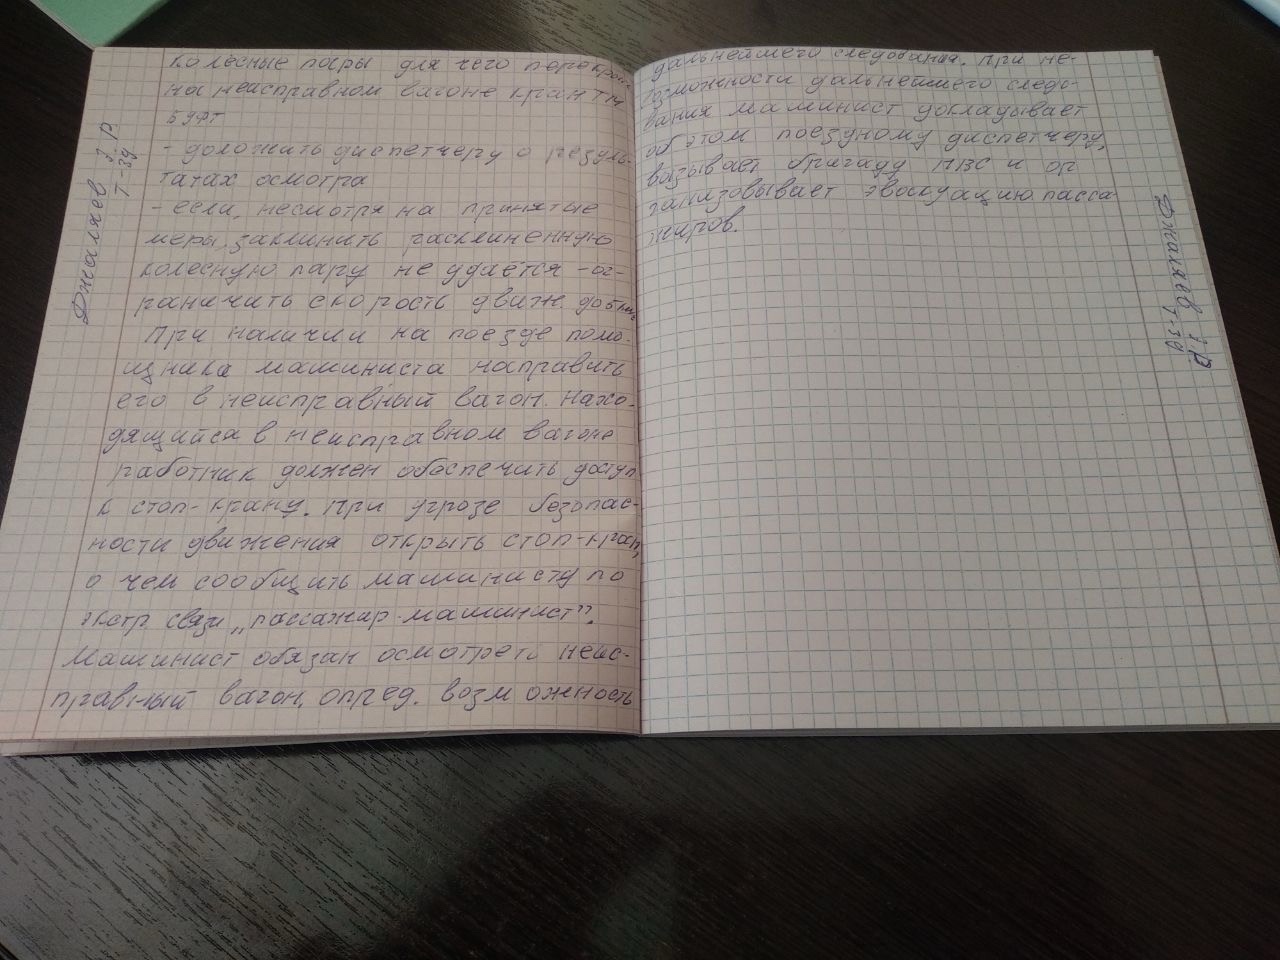 колёсные пары для чего перекрыть
на неисправном вагоне кран ТМ
БУФТ
- доложить диспетчеру о резуль-
татах осмотра
- если, несмотря на принятые
меры, заклинить расклиненную
колесную пару не удаётся - ог-
раничить скорость движ. до
При наличии на поезде помо-
щника машиниста направить
его в неисправный вагон. Нахо-
дящийся в неисправном вагоне
работник должен обеспечить доступ
к стоп-крану. При угрозе безопас-
ности движения открыть стоп-кран,
о чем сообщить машинисту по
экстр связи „пассажир-машинист".
Машинист обязан осмотреть неис-
правный вагон, опред. возможность
Джаляев З.Р
Т-39
дальнейшего следования. При не-
возможности дальнейшего следо-
вания машинист докладывает
об этом поездному диспетчеру,
вызывает бригаду ПВС и ор
ганизовывает эвакуацию пасса
жиров.
Джаляев З.Р
Т-39